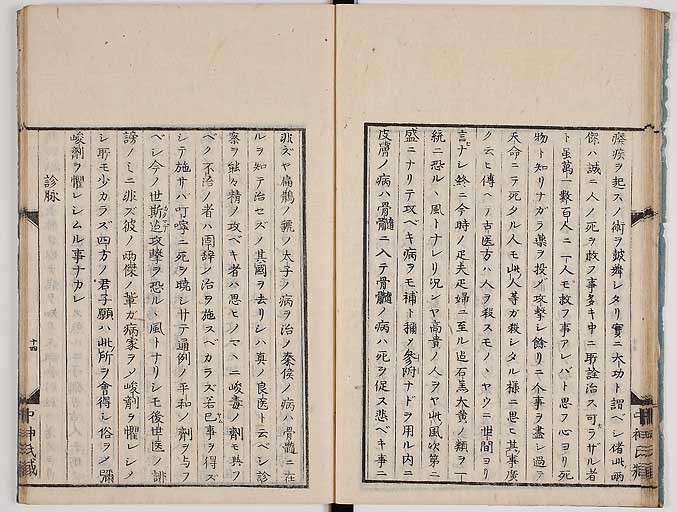 癈疾ヲ起スノ術ヲ鼓舞シタリ實ニ大功ト謂ベシ偖此兩
傑ハ誠ニ人ノ死ヲ救フ事多キ中ニ耶詮治ス可ラザル者
ト虽萬一數百人ニ一人モ救フ事アレバト思フ心ヨリ死
物ト知リナガラ藥ヲ投ノ攻撃シ餘リニ人事ヲ盡シ過テ
天命ニテ死タル人モ此人等ガ殺シタル様ニ思ヒ其事廣
ク云ヒ傳ヘテ古医方ハ人ヲ殺スモノヽヤウニ世間ヨリ
言ナレ終ニ今時ノ疋夫疋婦ニ至ル迠石膏大黄ノ類ヲ一
統ニ恐ルヽ風トナレリ況ンヤ高貴ノ人ヲヤ此風次第ニ
盛ニナリテ攻ベキ病ヲモ補ト稱ノ參附ナドヲ用ル内ニ
皮膚ノ病ハ骨髓ニ入テ骨髓ノ病ハ死ヲ促ス悲ベキ事ニ
非ズヤ扁鵲ノ虢ノ太子ノ病ヲ治ノ秦侯ノ病ハ骨髓ニ在
ルヲ知テ治セズノ其國ヲ去リシハ真ノ良医ト云ベシ診
察ヲ能々精ノ攻ベキ者ハ思ヒノマヽニ峻毒ノ劑モ與フ
ベク不治ノ者ハ固辞ノ治ヲ施スベカラズ若已事ヲ得ズ
シテ施サバ叮嚀ニ死ヲ曉シサテ通例ノ平和ノ劑ヲ与フ
ベシ今ノ世斯迠攻撃ヲ恐ルヽ風トナリシモ後世医ノ誹
謗ノミニ非ズ彼ノ兩傑ノ輩ガ病家ヲノ峻劑ヲ懼レシノ
シ耶モ少カラズ四方ノ君子願ハ此所ヲ會得シ俗ヲノ彌
峻劑ヲ懼レシムル事ナカレ
診脉
十四
中神氏藏